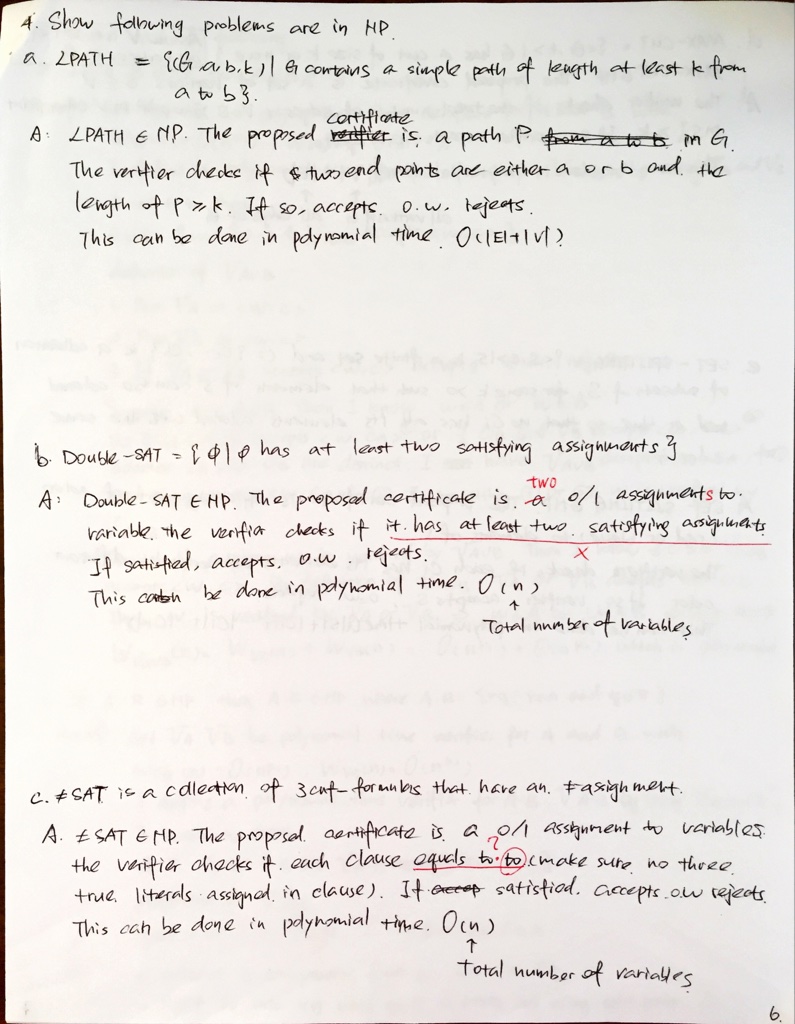 4. Show following problems are in NP.
a. LPATH = {(G, a, b, k) | G contains a simple path of length at least k from
a to b}.
certificate
A: LPATH ∈ NP. The proposed verifier is a path P from a to b in G.
The verifier checks if two end points are either a or b and the
length of P ≥ k. If so, accepts. o.w. rejects.
This can be done in polynomial time. O(|E|+|V|)
b. Double-SAT = { Φ | Φ has at least two satisfying assignments }
two
A: Double-SAT ∈ NP. The proposed certificate is a 0/1 assignments to
variable. the verifier checks if it has at least two satisfying assignments
×
If satisfied, accepts, o.w. rejects.
This can be done in polynomial time. O(n)
↑
Total number of variables
c. ≠SAT is a collection of 3cnf-formulas that have an ≠asighment.
A. ≠SAT ∈ NP. The proposal certificate is a 0/1 assignment to variables
?
the verifier checks if each clause equals to to (make sure no three
true literals assigned in clause). If accep satisfied. accepts o.w rejects.
This can be done in polynomial time. O(n)
↑
Total number of variables
6.